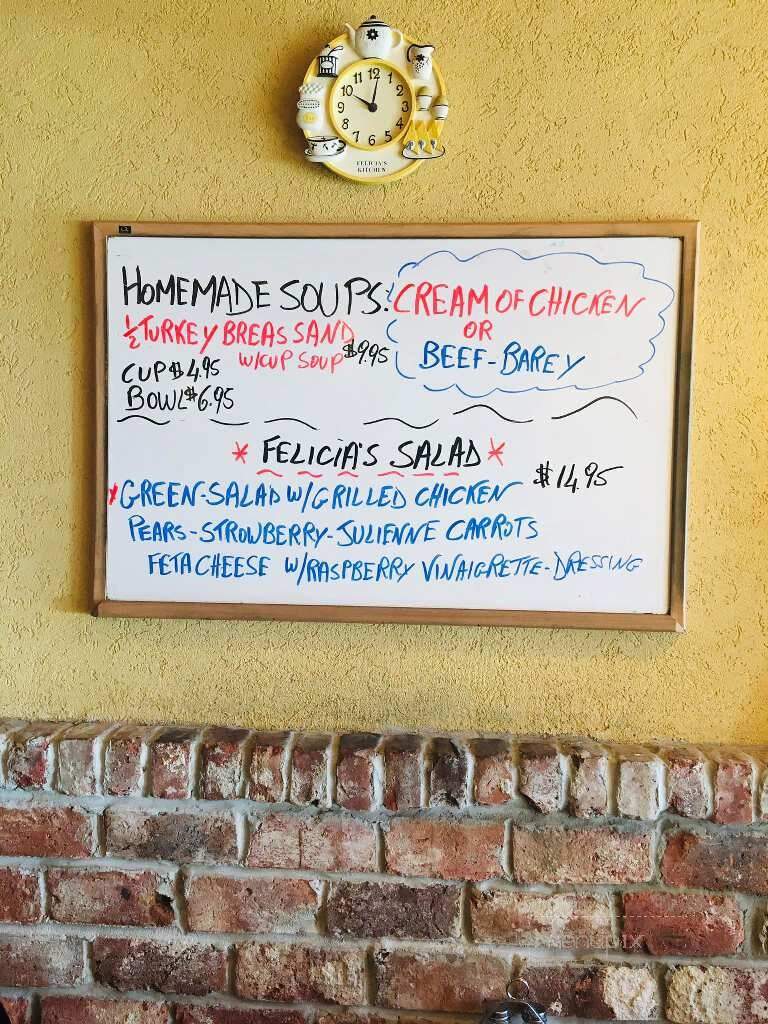 12
1
2
3
4
5
6
7
8
9
10
11
FELICIA'S
KITCHEN
HOMEMADE SOUPS: CREAM OF CHICKEN
OR
BEEF-BAREY
½ TURKEY BREAS SAND
W/CUP SOUP $9.95
CUP $4.95
BOWL $6.95
* FELICIA'S SALAD *
$14.95
*GREEN-SALAD W/GRILLED CHICKEN
PEARS-STROWBERRY-JULIENNE CARROTS
FETA CHEESE W/RASPBERRY VINAIGRETTE-DRESSING